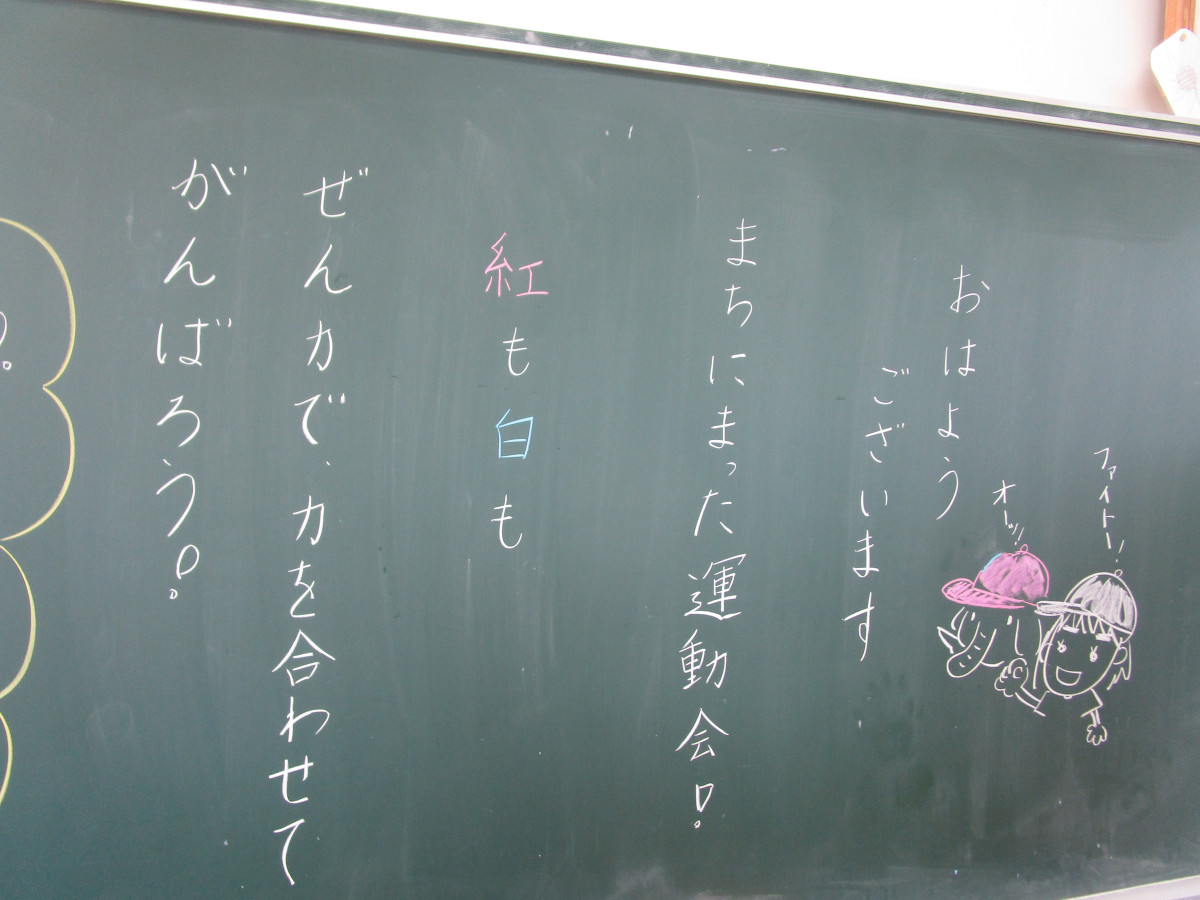 ファイトー!!
オーッ!!
おはよう
ございます
まちにまった運動会!
紅も白も
ぜんカで、力を合わせて
がんばろう!